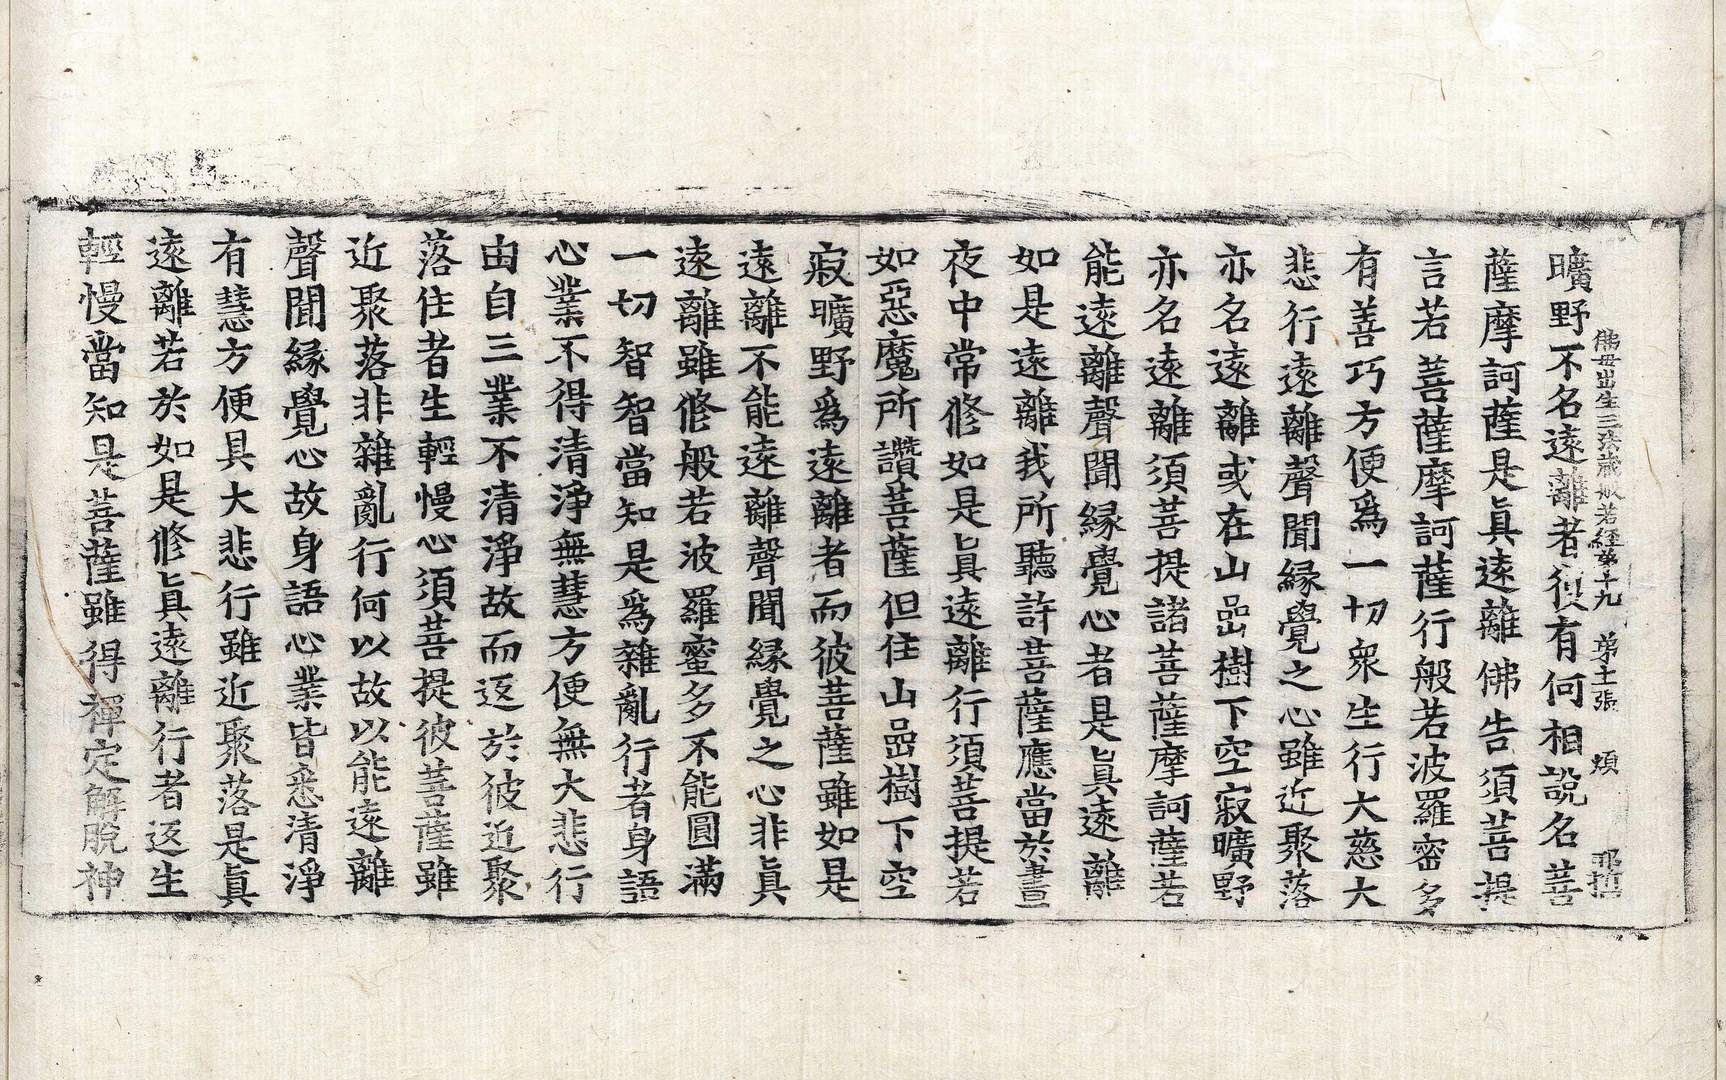 佛母出生三法藏般若經第十九 第十一張 煩
曠野不名遠離者復有何相說名菩
薩摩訶薩是眞遠離佛告須菩提
言若菩薩摩訶薩行般若波羅蜜多
有善巧方便爲一切衆生行大慈大
悲行遠離聲聞緣覺之心雖近聚落
亦名遠離或在山嵒樹下空寂曠野
亦名遠離須菩提諸菩薩摩訶薩若
能遠離聲聞緣覺心者是眞遠離
如是遠離我所聽許菩薩應當於晝
夜中常修如是眞遠離行須菩提若
如惡魔所讚菩薩但住山嵒樹下空
寂曠野爲遠離者而彼菩薩雖如是
遠離不能遠離聲聞緣覺之心非眞
遠離雖修般若波羅蜜多不能圓滿
一切智智當知是爲雜亂行者身語
心業不得清淨無慧方便無大悲行
由自三業不清淨故而返於彼近聚
落住者生輕慢心須菩提彼菩薩雖
近聚落非雜亂行何以故以能遠離
聲聞緣覺心故身語心業皆悉清淨
有慧方便具大悲行雖近聚落是眞
遠離若於如是修眞遠離行者返生
輕慢當知是菩薩雖得禪定解脫神